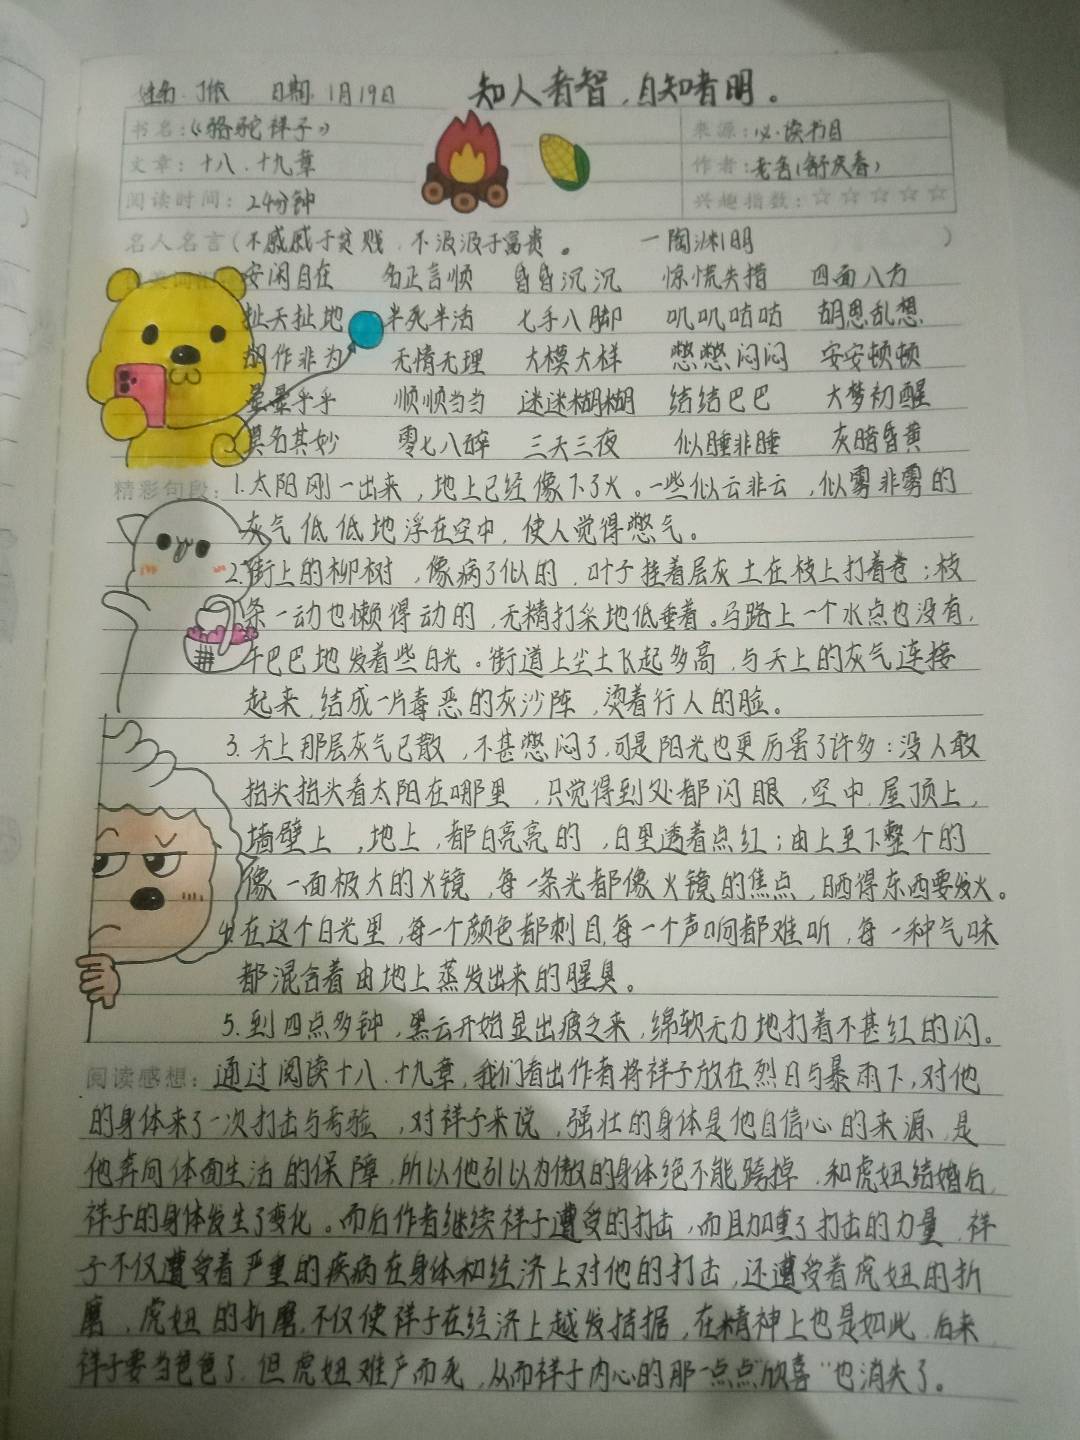 姓名: 日期: 1月19日 知人者智，自知者明。
书名：《骆驼祥子》 来源：必读书目
文章：十八、十九章 作者：老舍(舒庆春)
阅读时间：24分钟 兴趣指数：☆☆☆☆☆
名人名言(不戚戚于贫贱，不汲汲于富贵。 —陶渊明 )
安闲自在 名正言顺 昏昏沉沉 惊慌失措 四面八方
扯天扯地 半死半活 七手八脚 叽叽咕咕 胡思乱想
胡作非为 无情无理 大模大样 憋憋闷闷 安安顿顿
晕晕乎乎 顺顺当当 迷迷糊糊 结结巴巴 大梦初醒
莫名其妙 零七八碎 三天三夜 似睡非睡 灰暗昏黄
精彩句段：1.太阳刚一出来，地上已经像下了火。一些似云非云，似雾非雾的
灰气低低地浮在空中，使人觉得憋气。
2.街上的柳树，像病了似的，叶子挂着层灰土在枝上打着卷；枝
条一动也懒得动的，无精打采地低垂着。马路上一个水点也没有，
干巴巴地发着些白光。街道上尘土飞起多高，与天上的灰气连接
起来，结成一片毒恶的灰沙阵，烫着行人的脸。
3.天上那层灰气已散，不甚憋闷了，可是阳光也更厉害了许多：没人敢
抬头抬头看太阳在哪里，只觉得到处都闪眼，空中，屋顶上，
墙壁上，地上，都白亮亮的，白里透着点红；由上至下整个的
像一面极大的火镜，每一条光都像火镜的焦点，晒得东西要发火。
4.在这个白光里，每一个颜色都刺目，每一个声响都难听，每一种气味
都混合着由地上蒸发出来的腥臭。
5.到四点多钟，黑云开始显出疲乏来，绵软无力地打着不甚红的闪。
阅读感想：通过阅读十八、十九章，我们看出作者将祥子放在烈日与暴雨下，对他
的身体来了一次打击与考验，对祥子来说，强壮的身体是他自信心的来源，是
他奔向体面生活的保障，所以他引以为傲的身体绝不能跨掉，和虎妞结婚后，
祥子的身体发生了变化。而后作者继续祥子遭受的打击，而且加重了打击的力量，祥
子不仅遭受着严重的疾病在身体和经济上对他的打击，还遭受着虎妞的折
磨，虎妞的折磨，不仅使祥子在经济上越发拮据，在精神上也是如此，后来，
祥子要当爸爸了，但虎妞难产而死，从而祥子内心的那一点点"欣喜"也消失了。